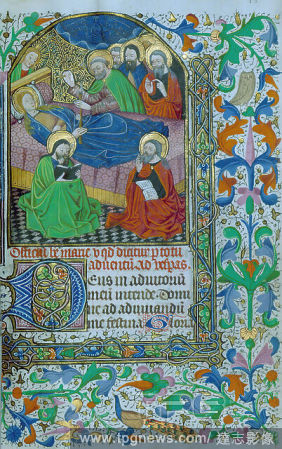 Officiu be marie v qd dicitur p totu
aduentu. Ad vesp̄as.
Deus in adiutoriu
meu intende. Domi
ne ad adiuuandu
me festina. Gloria
www.tpgnews.com 達志影像